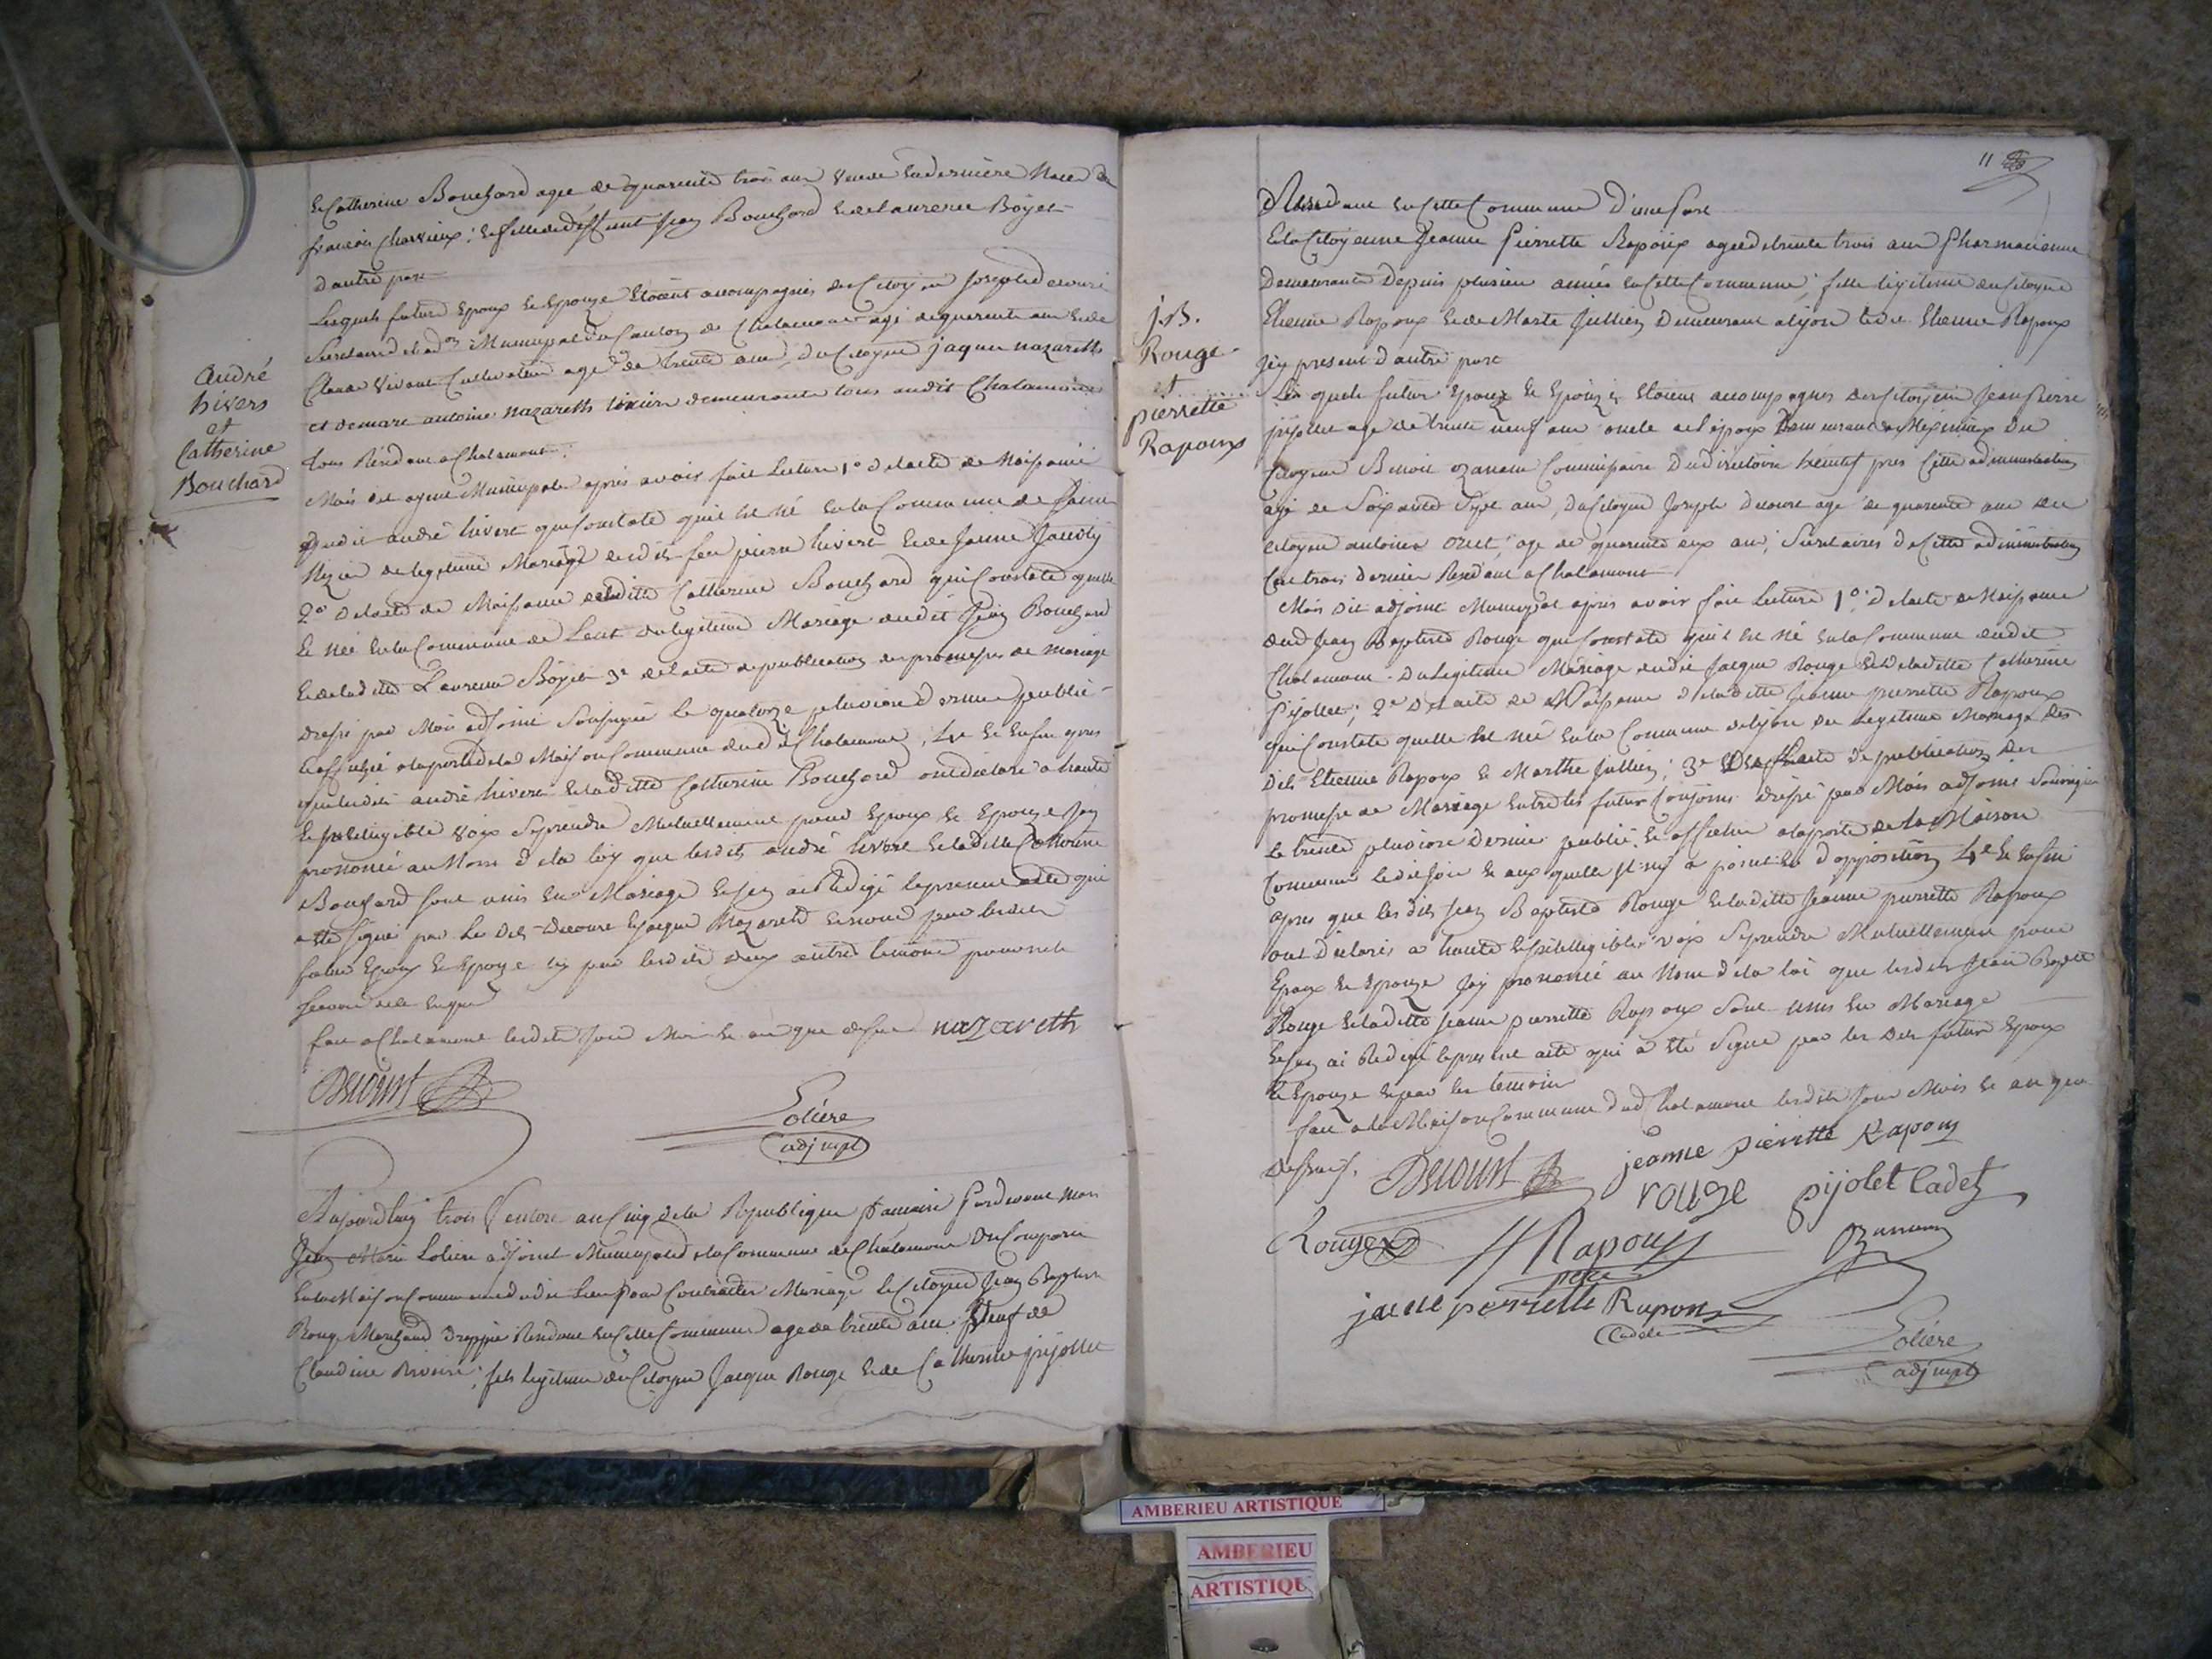 André
hivers
et
Catherine
Bouchard
Et Catherine Bouchard agée de quarente trois ans veuve en dernière Noces de
françois Charvieux; et fille de deffunt Jean Bouchard et de Laurence Boyet
d'autre part
Lesquels futurs Epoux et Epouze Etoient accompagnés des Citoyens Joseph
Secretaire Municipal du Canton de Chalamont agé de quarente ans et de
Claude Vivant Cultivateur agé de trente ans, du Citoyen jaque nazareth
et de antoine nazareth demeurants tous audit Chalamont
tous Résidant a Chalamont
Mois dit agent Municipal après avoir fait Lecture 1° de lacte de Naissance
dudit andré hivert qui Constate qu'il est né en la Commune de
de legitime Mariage desdits feu pierre hivert et de Jeanne
2° de lacte de Naissance de laditte Catherine Bouchard qui Constate quelle
Est née en la Commune de Lent du legitime Mariage dudit Jean Bouchard
et de laditte Laurence Boyet 3° de lacte de publication des promesses de mariage
dressé par Mois adjoint Soussigné le quatorze pluviose dernier publié
et affiché a la porte de la Maison Commune dudit Chalamont, et Enfin après
que lesdits andré hivert et laditte Catherine Bouchard ont déclaré a haute
et Intelligible voix Se prendre Mutuellement pour Epoux et Epouze Jay
prononcé au Nom de la loy que lesdits andré hivert et laditte Catherine
Bouchard sont unis en Mariage et jen ai Redigé le present acte qui
a été Signé par les dits Decourt et jaque Nazareth et non par lesdits
futurs Epoux et Epouze ny par lesdits deux autres temoins pour ne le
Scavoir de ce Enquis
fait a Chalamont lesdits jour Mois et an que dessus nazareth
Decourt
Loliere
adj mpl
Aujourdhuy trois Ventose an Cinq de la Republique francaise pardevant Moy
Jean Marie Loliere adjoint Municipal de la Commune de Chalamont Est Comparu
en la Maison Commune dudit Lieu pour Contracter Mariage le Citoyen Jean Baptiste
Rouge Marchand Drappié Résidant en Cette Commune agé de trente ans Veuf de
Claudine; fils legitime du Citoyen Jacque Rouge et de Catherine pijollet
11
j.B.
Rouge
et
pierrette
Rapoux
Résidant en Cette Commune d'une part
Et la Citoyenne Jeanne Pierrette Rapoux agée de trente trois ans Pharmacienne
Demeurante Depuis plusieurs années en Cette Commune, fille legitime du Citoyen
Etienne Rapoux et de Marte Jullien Demeurant a lyon ledit Etienne Rapoux
Icy present d'autre part
Les quels futurs Epoux et Epouze Etoient accompagnés des Citoyens Jean Pierre
pijollet agé de trente neuf ans oncle de l'époux Demeurant a Meximieux Du
Citoyen Benoit ozanam Commissaire Du directoire Executif pres Cette administration
agé de Soixante Sept ans, du Citoyen Joseph Decourt agé de quarente ans et du
Citoyen antoine, agé de quarente deux ans, Secretaires de Cette administration
Ces trois derniers Residant a Chalamont
Mois Dit adjoint Municipal apres avoir fait Lecture 1° de lacte de Naissance
dud Jean Baptiste Rouge qui Constate quil est né en la Commune dudit
Chalamont du legitime Mariage dudit Jacque Rouge et de laditte Catherine
Pijollet; 2° de lacte de Naissance de laditte Jeanne pierrette Rapoux
qui Constate quelle Est née en la Commune de lyon du legitime Mariage Des
dits Etienne Rapoux et Marthe Jullien; 3° De lacte de publication Des
promesse de Mariage entre les futurs Conjoints dressé par Mois adjoint Soussigné
le trente pluviose dernier publié et affiché a la porte de la Maison
Commune ledit jour et aux quelle Il ny a point eu d'opposition et Enfin
apres que les dits Jean Baptiste Rouge et laditte Jeanne pierrette Rapoux
ont déclarés a haute et Intelligible voix Se prendre Mutuellement pour
Epoux et Epouze Jay prononcé au Nom de la loi que lesdits Jean Baptiste
Rouge et laditte Jeanne pierrette Rapoux Sont unis en Mariage
et jen ai Redigé le present acte qui a été Signé par les Dits futurs Epoux
et Epouze et par les temoins
fait a la Maison Commune dud Chalamont lesdits Jour Mois et an que
Dessus. Decourt jeanne pierrette Rapoux
rouge pijolet Cadet
Rouge Rapoux père Ozanam
jaene perrette Rapoux
Cadete
Loliere
adj mpl
AMBERIEU ARTISTIQUE
AMBERIEU
ARTISTIQU